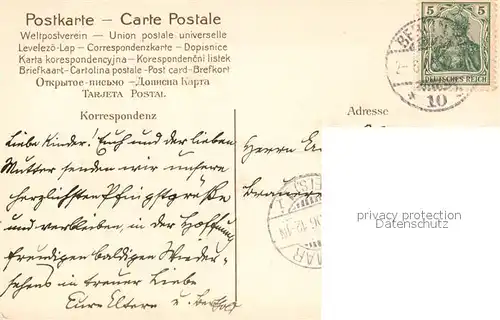 Postkarte – Carte Postale
Weltpostverein – Union postale universelle
Levelező-Lap – Correspondenzkarte – Dopisnice
Karta korespondencyjna – Korespondenční lístek
Briefkaart – Cartolina postale – Post card – Brefkort
Открытое письмо – Дописна Карта
Tarjeta Postal
5 5
DEUTSCHES REICH
10
Korrespondenz
Adresse
Liebe Kinder! Euch und der lieben
Mutter senden wir unsere
herzlichsten Pfingstgrüße
und verbleiben, in der Hoffnung
freudigen baldigen Wieder-
sehens in treuer Liebe
Eure Eltern u.
Herrn
privacy protection
Datenschutz